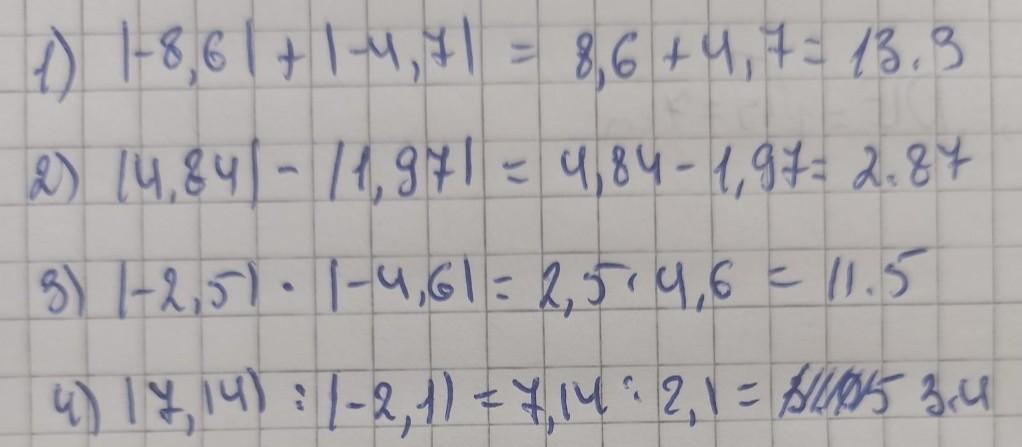 1) |-8,6| + |-4,7| = 8,6 + 4,7 = 13.3
2) |4,84| - |1,97| = 4,84 - 1,97 = 2.87
3) |-2,5| · |-4,6| = 2,5 · 4,6 = 11.5
4) |7,14| : |-2,1| = 7,14 : 2,1 = 3.4